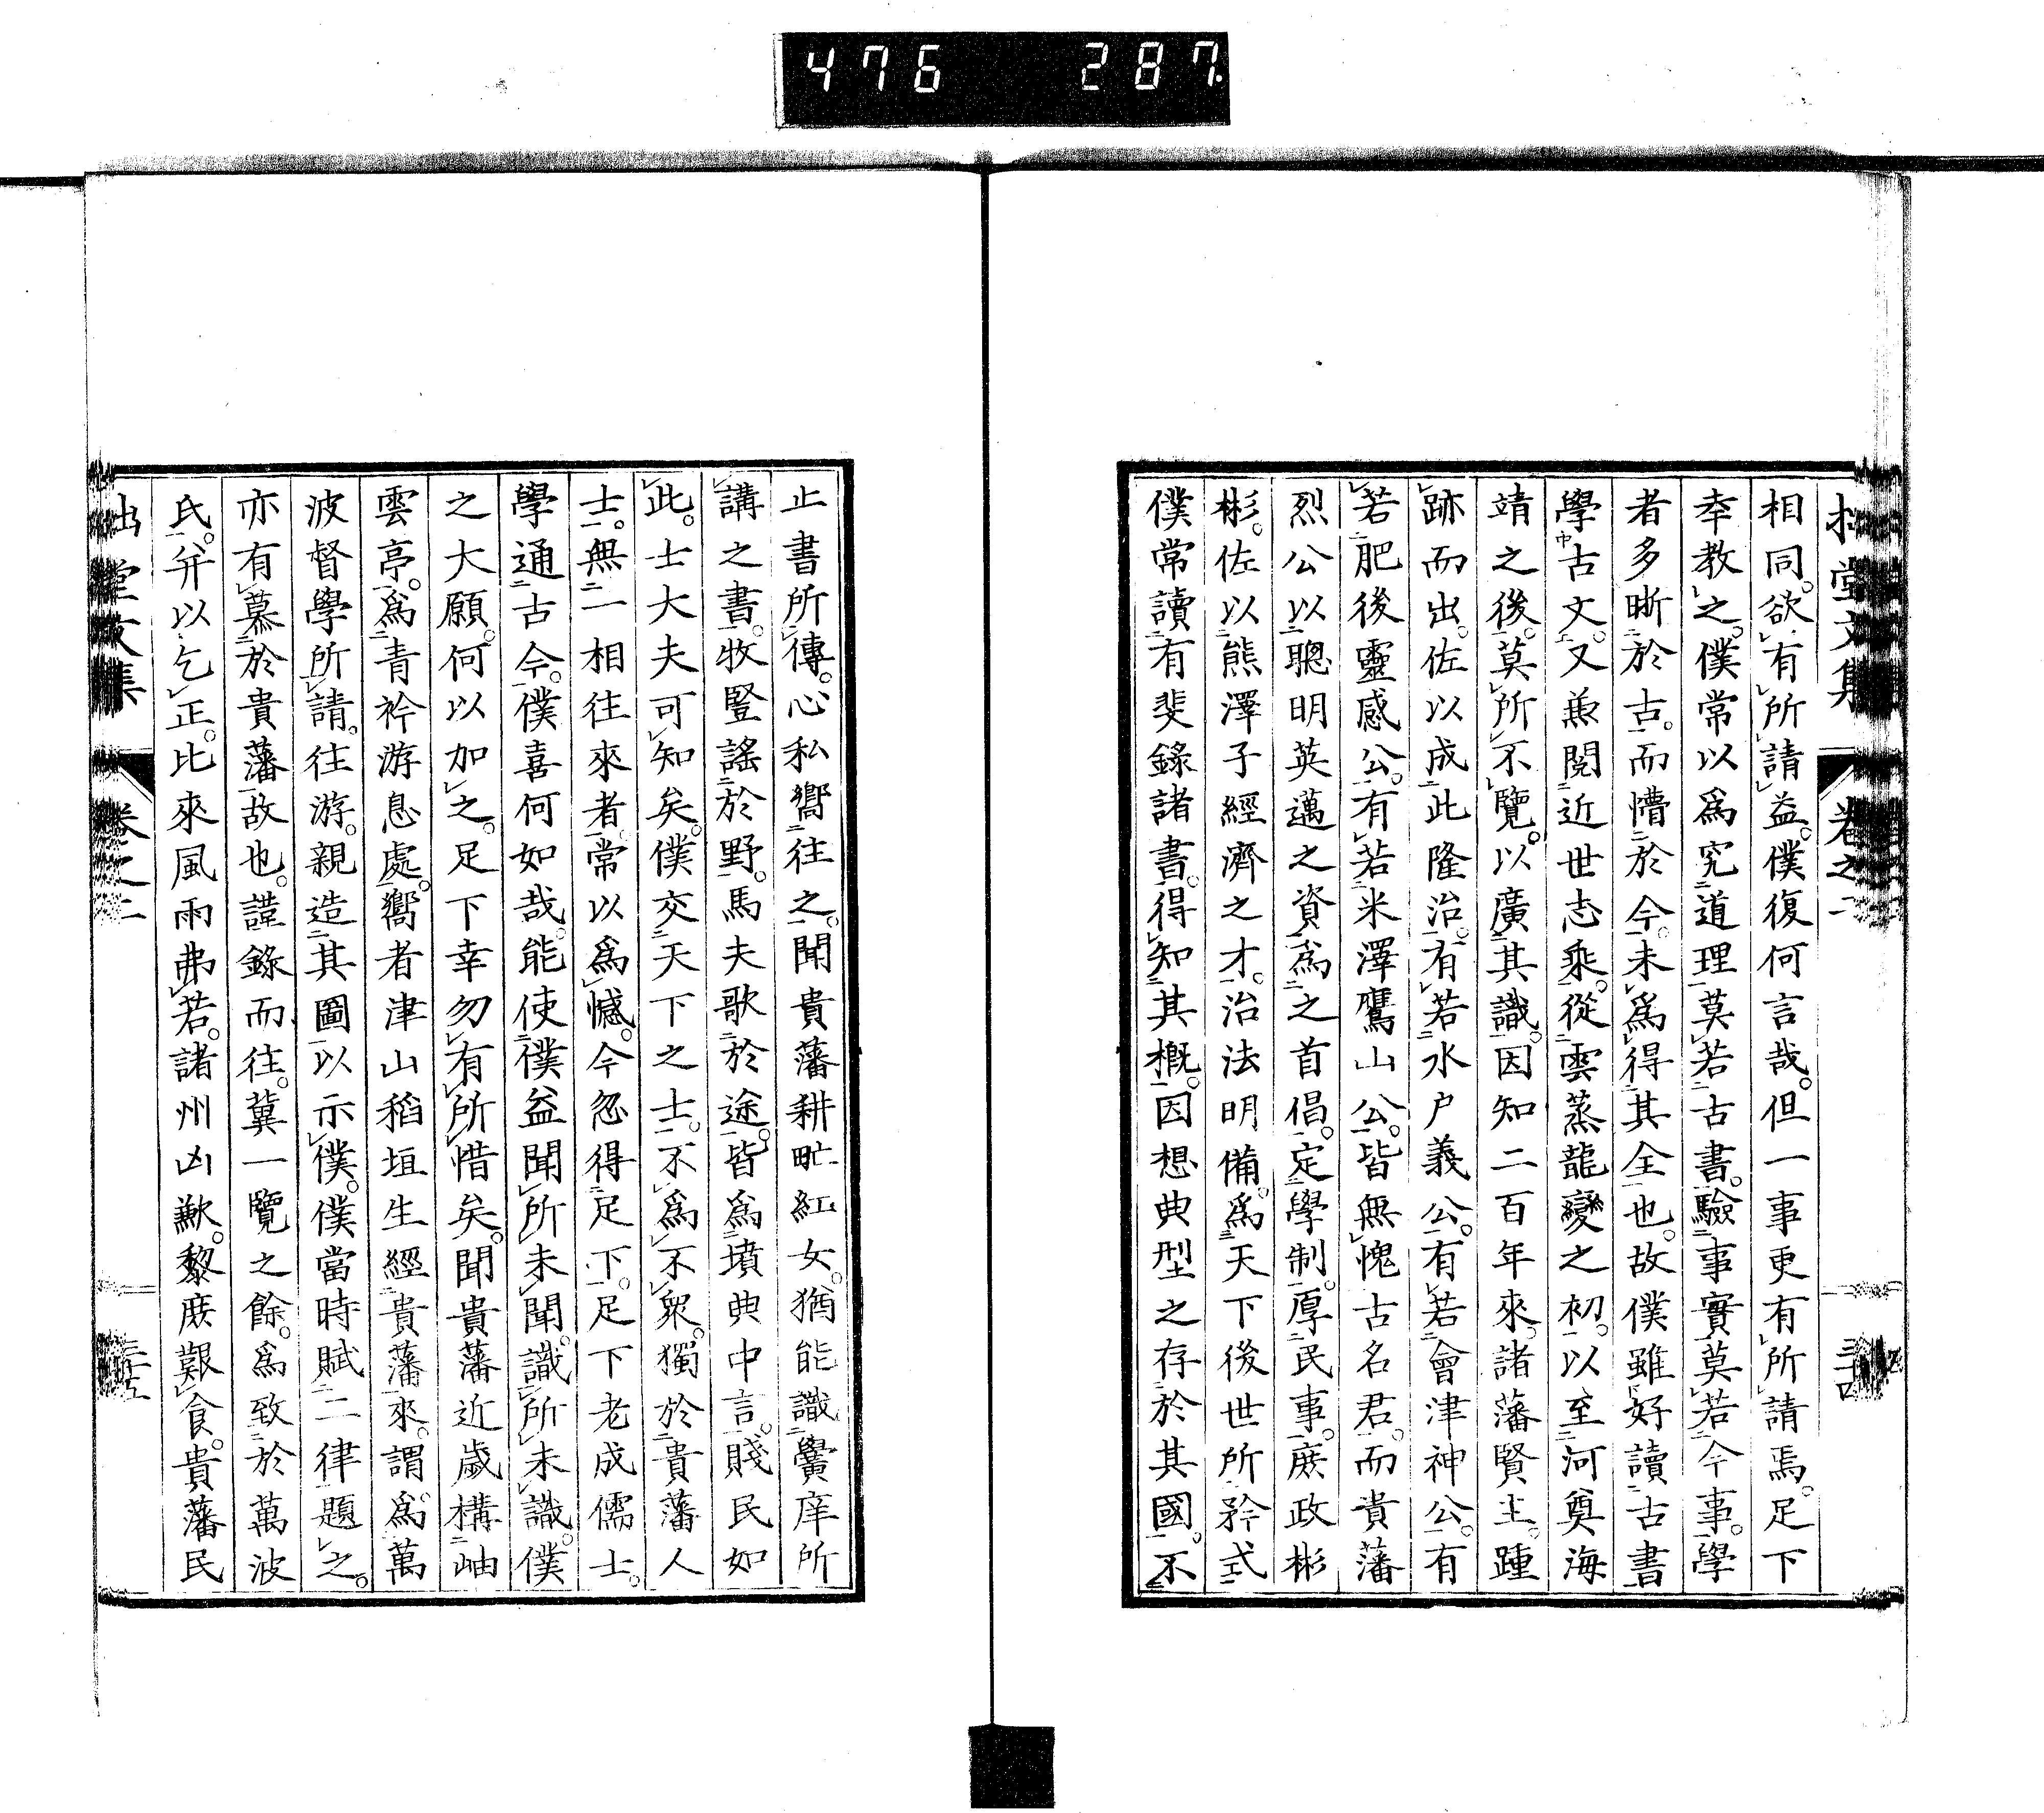 476 287
相同。欲有所請益。僕復何言哉。但一事更有所請焉。足下
奉教之。僕常以爲究道理莫若古書。驗事實莫若今事。學
者多晰於古。而懵於今。未爲得其全也。故僕雖好讀古書
學古文。又兼閱近世志乘。從雲蒸龍變之初。以至河奠海
靖之後。莫所不覽。以廣其識。因知二百年來。諸藩賢主。踵
跡而出。佐以成此隆治。有若水户義公。有若會津神公。有
若肥後靈感公。有若米澤鷹山公。皆無愧古名君。而貴藩
烈公以聰明英邁之資。爲之首倡。定學制。厚民事。庶政彬
彬。佐以熊澤子經濟之才。治法明備。爲天下後世所矜式
僕常讀有斐錄諸書。得知其概。因想典型之存於其國。不
止書所傳。心私嚮往之。聞貴藩耕甿紅女。猶能識黌庠所
講之書。牧豎謠於野。馬夫歌於途。皆爲墳典中言。賤民如
此。士大夫可知矣。僕交天下之士。不爲不衆。獨於貴藩人
士。無一相往來者。常以爲憾。今忽得足下。足下老成儒士。
學通古今。僕喜何如哉。能使僕益聞所未聞。識所未識。僕
之大願。何以加之。足下幸勿有所惜矣。聞貴藩近歲構岫
雲亭。爲青衿游息處。嚮者津山稻垣生經貴藩來。謂爲萬
波督學所請。往游。親造其圖以示僕。僕當時賦二律題之。
亦有慕於貴藩故也。謹錄而往。冀一覽之餘。爲致於萬波
氏。幷以乞正。比來風雨弗若。諸州凶歉。黎庶艱食。貴藩民